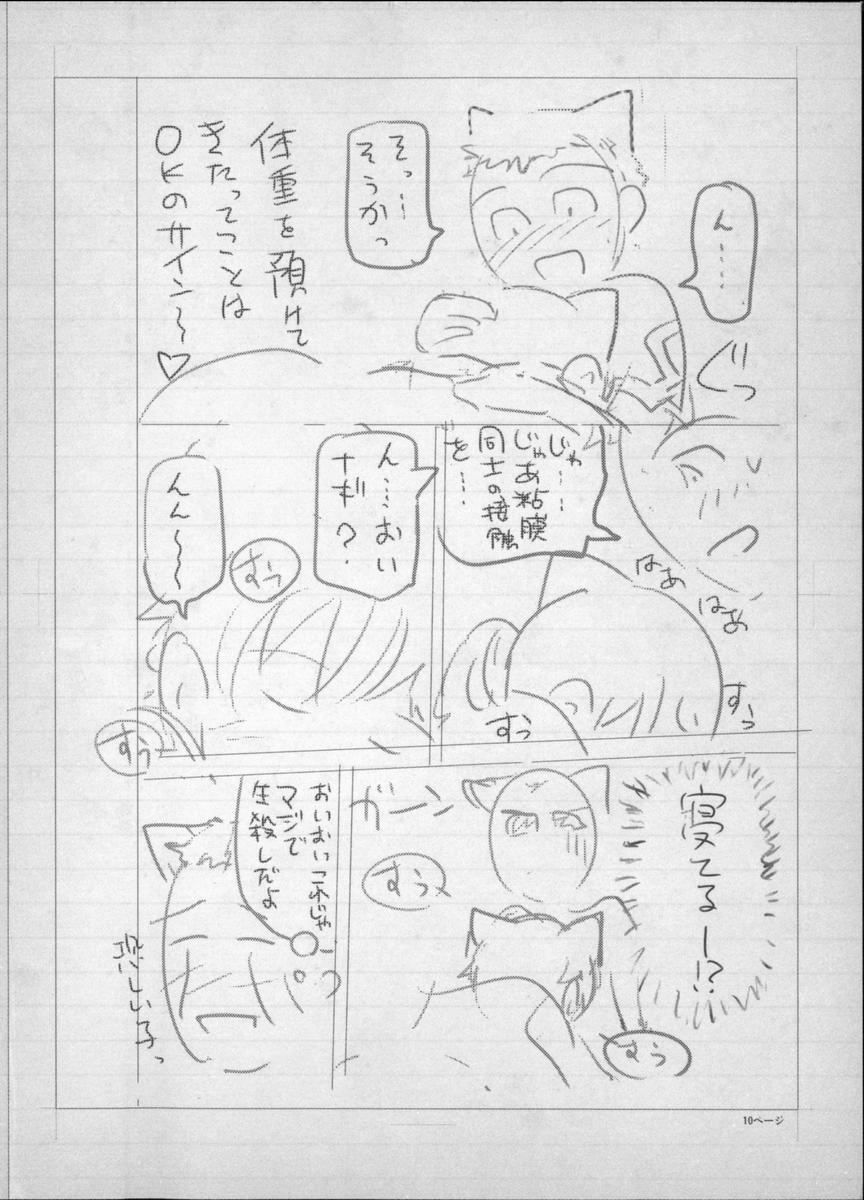 ん……
ぐっ
そっ…
そうかっ
体重を預けて
きたってことは
OKのサイン〜♡
じゃ…
じゃあ粘膜
同士の接触
を…
はぁ
はぁ
すぅ
すぅ
ん…おい
ナギ？
すぅ
んん〜〜
すぅ
寝てるー!?
ガーン
すぅ
すぅ
おいおいこれじゃ
マジで
生殺しだよ
10ページ